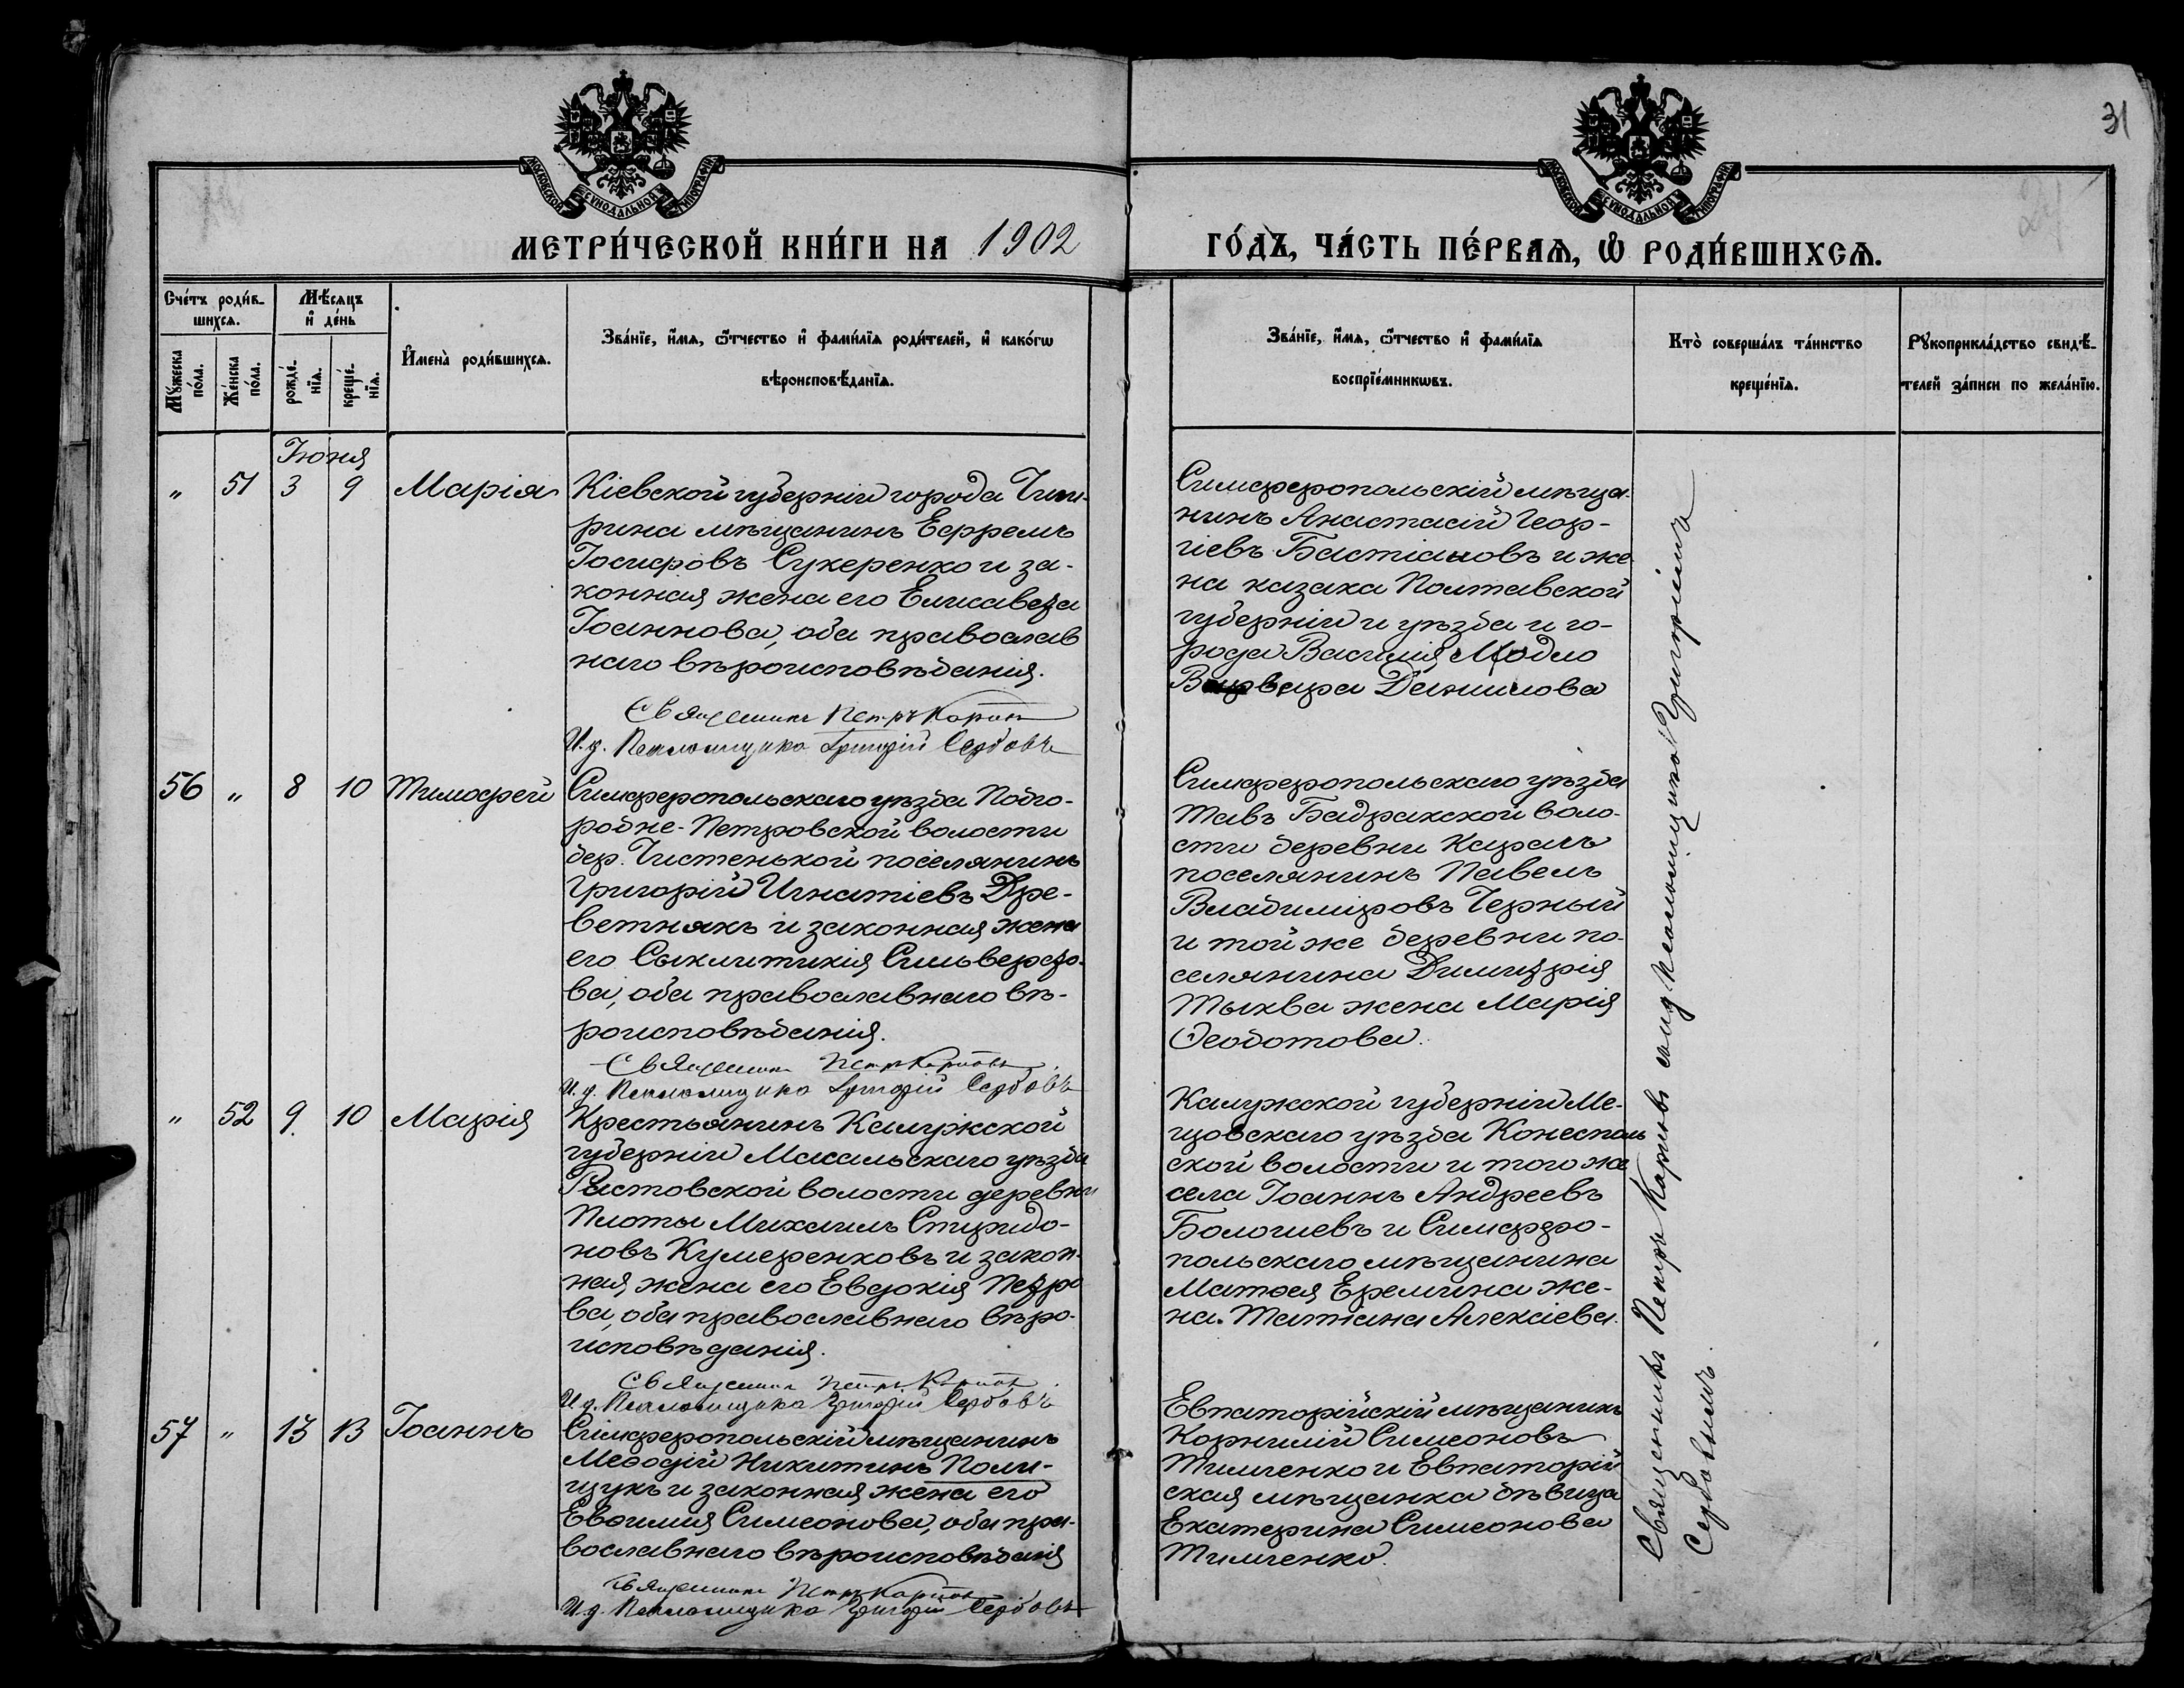 31
МОСКОВСКОЙ СУНОДАЛЬНОЙ ТИПОГРАФІИ
МОСКОВСКОЙ СУНОДАЛЬНОЙ ТИПОГРАФІИ
МЕТРИ́ЧЕСКОЙ КНИ́ГИ НА 1902
ГО́ДЪ, ЧА́СТЬ ПЕ́РВАѦ, Ѽ РОДИ́ВШИХСѦ.
Сче́тъ роди́в-
шихсѧ.
Мѣ́сяцъ
и҆ де́нь
Мꙋ́жеска
по́ла.
Же́нска
по́ла.
рожде́-
нїѧ.
креще́-
нїѧ.
И҆мена̀ роди́вшихсѧ.
Зва́нїе, и҆́мѧ, ѻ҆́тчество и҆ фами́лїѧ роди́телей, и҆ како́гѡ
вѣроисповѣ́данїѧ.
Зва́нїе, и҆́мѧ, ѻ҆́тчество и҆ фами́лїѧ
воспрїе́мникѡвъ.
Кто̀ соверша́лъ та́инство
креще́нїѧ.
Рꙋкоприкла́дство свидѣ́-
телей за́писи по жела́нїю.
Іюня
" 51 3 9 Марія
Кіевской губерніи города Чиги-
рина мѣщанинъ Ефремъ
Іосифовъ Сукеренко и за-
конная жена его Елисавета
Іоаннова, оба православ
наго вѣроисповѣданія.
Священникъ Петръ Карповъ
И.д. Псаломщика Григорій Сербовъ
Симферопольскій мѣща-
нинъ Анастасій Геор-
гіевъ Бастіановъ и же
на казака Полтавской
губерніи и уѣзда и го-
рода Василія Модло
Варвара Данилова
56 " 8 10 Тимофей
Симферопольскаго уѣзда Подго-
родне-Петровской волости
дер. Чистенькой поселянинъ
Григорій Игнатіевъ Дре-
ветнякъ и законная жена
его Сыклитикія Сильверсто-
ва, оба православнаго вѣ-
роисповѣданія.
Священникъ Петръ Карповъ
И.д. Псаломщика Григорій Сербовъ
Симферопольскаго уѣзда
Тавъ Бадракской воло-
сти деревни Карачъ
поселянинъ Павелъ
Владиміровъ Черный
и той же деревни по-
селянина Димитрія
Тыква жена Марія
Ѳеодотова.
" 52 9 10 Марія
Крестьянинъ Калужской
губерніи Масальскаго уѣзда
волости деревни
Плоты Михаилъ Спиридо-
новъ Кумеренковъ и закон-
ная жена его Евдокія Петро
ва, оба православнаго вѣро-
исповѣданія.
Священникъ Петръ Карповъ
И.д. Псаломщика Григорій Сербовъ
Калужской губерніи Ме-
щовскаго уѣзда Конесполь
ской волости и того же
села Іоаннъ Андреевъ
и Симферо-
польскаго мѣщанина
Матѳея Еремина же-
на Татіана Алексіева.
57 " 13 13 Іоаннъ
Симферопольскій мѣщанинъ
Меѳодій Никитинъ Поли-
щукъ и законная жена его
Евѳимія Симеонова, оба пра-
вославнаго вѣроисповѣданія
Священникъ Петръ Карповъ
И.д. Псаломщика Григорій Сербовъ
Евпаторійскій мѣщанинъ
Корнилій Симеоновъ
Тимченко и Евпаторій
ская мѣщанка дѣвица
Екатерина Симеонова
Тимченко.
Священникъ Петръ Карповъ съ и.д. псаломщика Григоріемъ
Сербовымъ.